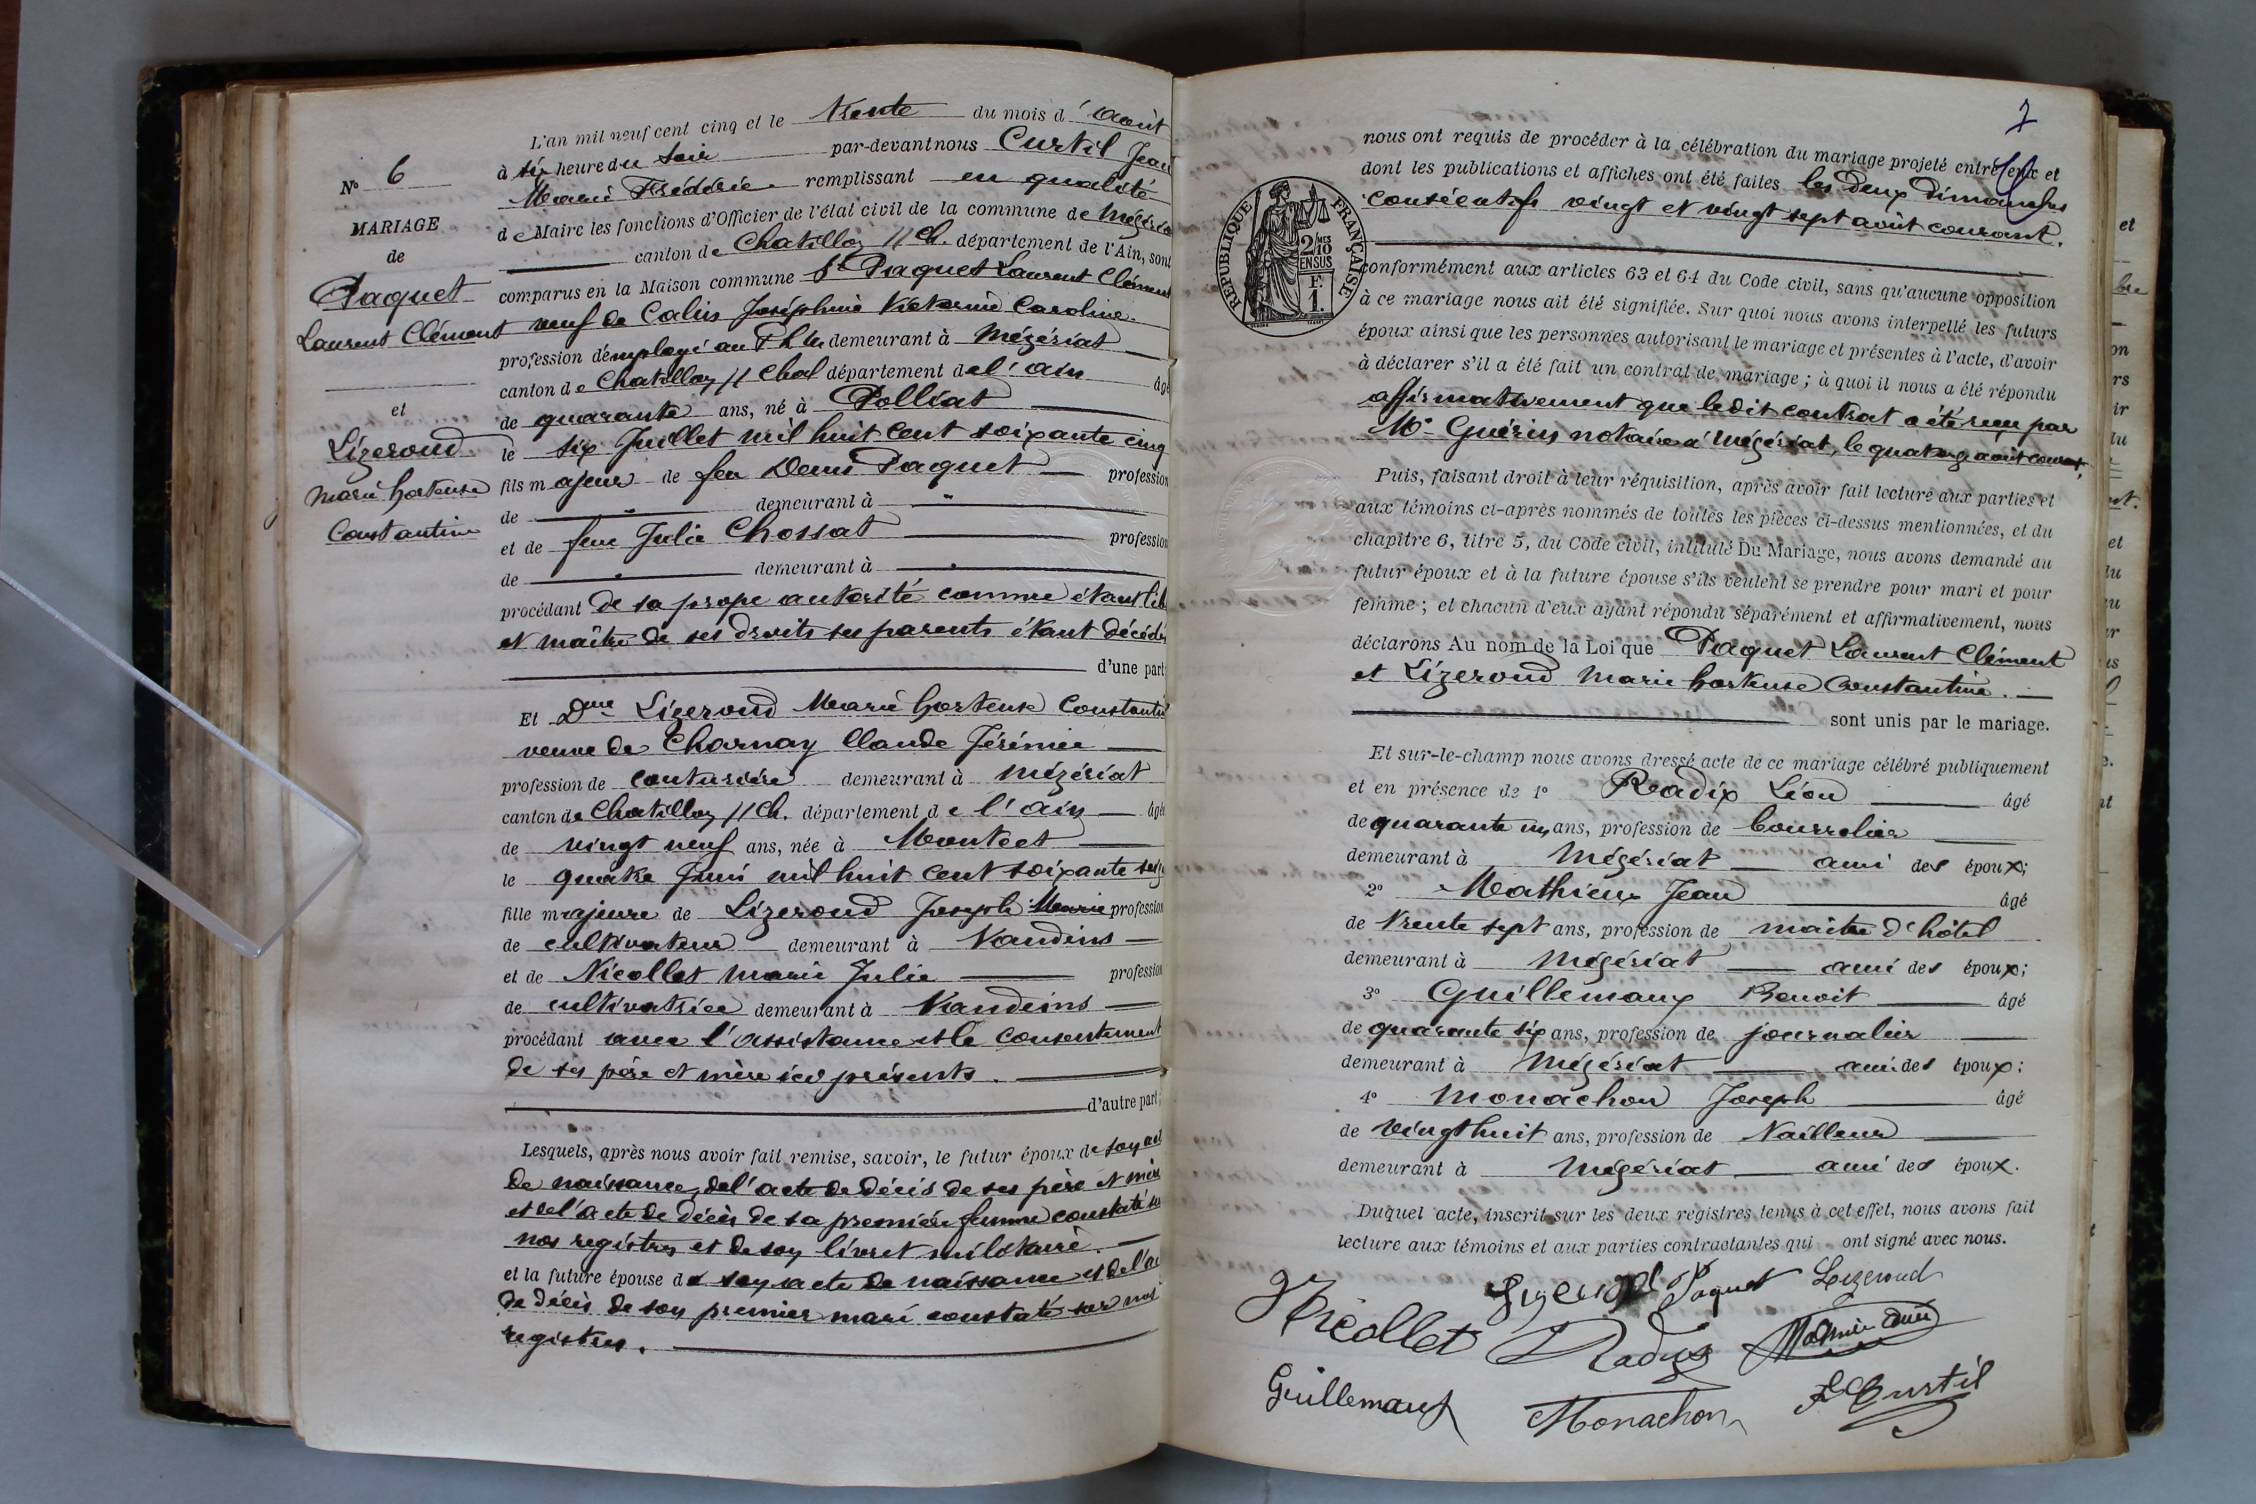 N° 6
MARIAGE
de
Paquet
Laurent Clément
et
Lizeroud
Marie hortense
Constantine
L'an mil neuf cent cinq et le trente du mois d' août
à six heure du soir par-devant nous Curtil Jean
Marie Frédéric remplissant en qualité
de Maire les fonctions d'Officier de l'état civil de la commune de Mézériat
canton de Chatillon s/ Ch. département de l'Ain, sont
comparus en la Maison commune Sr Paquet Laurent Clément
veuf de Joséphine Victorine Caroline.
profession d'employé au demeurant à Mézériat
canton de Chatillon s/ Chal département de l'ain âgé
de quarante ans, né à Polliat
le six Juillet mil huit cent soixante cinq
fils majeur de feu Denis Paquet profession
de " demeurant à "
et de feue Julie Chossat profession
de " demeurant à "
procédant de sa prope autorité comme étant libre
et maître de ses droits ses parents étant décédés
d'une part;
Et Dme Lizeroud Marie hortense Constantine
veuve de Charnay Claude Jérémie
profession de couturière demeurant à Mézériat
canton de Chatillon s/ Ch. département de l'ain âgée
de vingt neuf ans, née à Montcet
le quatre Juin mil huit cent soixante seize
fille majeure de Lizeroud Joseph Marie profession
de cultivateur demeurant à Vandeins
et de Nicollet Marie Julie profession
de cultivatrice demeurant à Vandeins
procédant avec l'assistance et le consentement
de ses père et mère ici présents.
d'autre part;
Lesquels, après nous avoir fait remise, savoir, le futur époux de son acte
de naissance, de l'acte de décès de ses père et mère
et de l'acte de décès de sa première femme constaté sur
nos registres et de son livret militaire.
et la future épouse de son acte de naissance et de l'acte
de décès de son premier mari constaté sur nos
registres.
7
nous ont requis de procéder à la célébration du mariage projeté entre eux et
dont les publications et affiches ont été faites les deux dimanches
consécutifs vingt et vingt sept août courant.
RÉPUBLIQUE FRANÇAISE
2/10 MES
EN SUS
F.
1.
conformément aux articles 63 et 64 du Code civil, sans qu'aucune opposition
à ce mariage nous ait été signifiée. Sur quoi nous avons interpellé les futurs
époux ainsi que les personnes autorisant le mariage et présentes à l'acte, d'avoir
à déclarer s'il a été fait un contrat de mariage; à quoi il nous a été répondu
affirmativement que ledit contrat a été reçu par
Me Guérin notaire à Mézériat, le quatorze août courant.
Puis, faisant droit à leur réquisition, après avoir fait lecture aux parties et
aux témoins ci-après nommés de toutes les pièces ci-dessus mentionnées, et du
chapitre 6, titre 5, du Code civil, intitulé Du Mariage, nous avons demandé au
futur époux et à la future épouse s'ils veulent se prendre pour mari et pour
femme; et chacun d'eux ayant répondu séparément et affirmativement, nous
déclarons Au nom de la Loi que Paquet Laurent Clément
et Lizeroud Marie hortense Constantine.
sont unis par le mariage.
Et sur-le-champ nous avons dressé acte de ce mariage célébré publiquement
et en présence de 1° Radix Léon âgé
de quarante un ans, profession de bourrelier
demeurant à Mézériat ami des époux;
2° Mathieu Jean âgé
de trente sept ans, profession de maître d'hôtel
demeurant à Mézériat ami des époux;
3° Guillemaux Benoit âgé
de quarante six ans, profession de journalier
demeurant à Mézériat ami des époux;
4° Monachon Joseph âgé
de vingt huit ans, profession de Tailleur
demeurant à Mézériat ami des époux.
Duquel acte, inscrit sur les deux registres tenus à cet effet, nous avons fait
lecture aux témoins et aux parties contractantes qui ont signé avec nous.
Lizeroud Paquet Lizeroud
Nicollet Radix
Guillemaux Monachon F Curtil